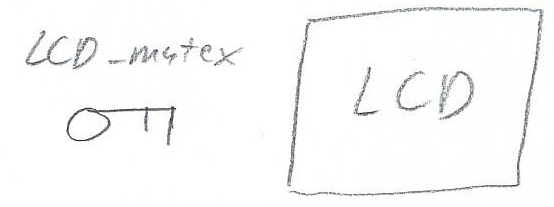 LCD_mutex
LCD